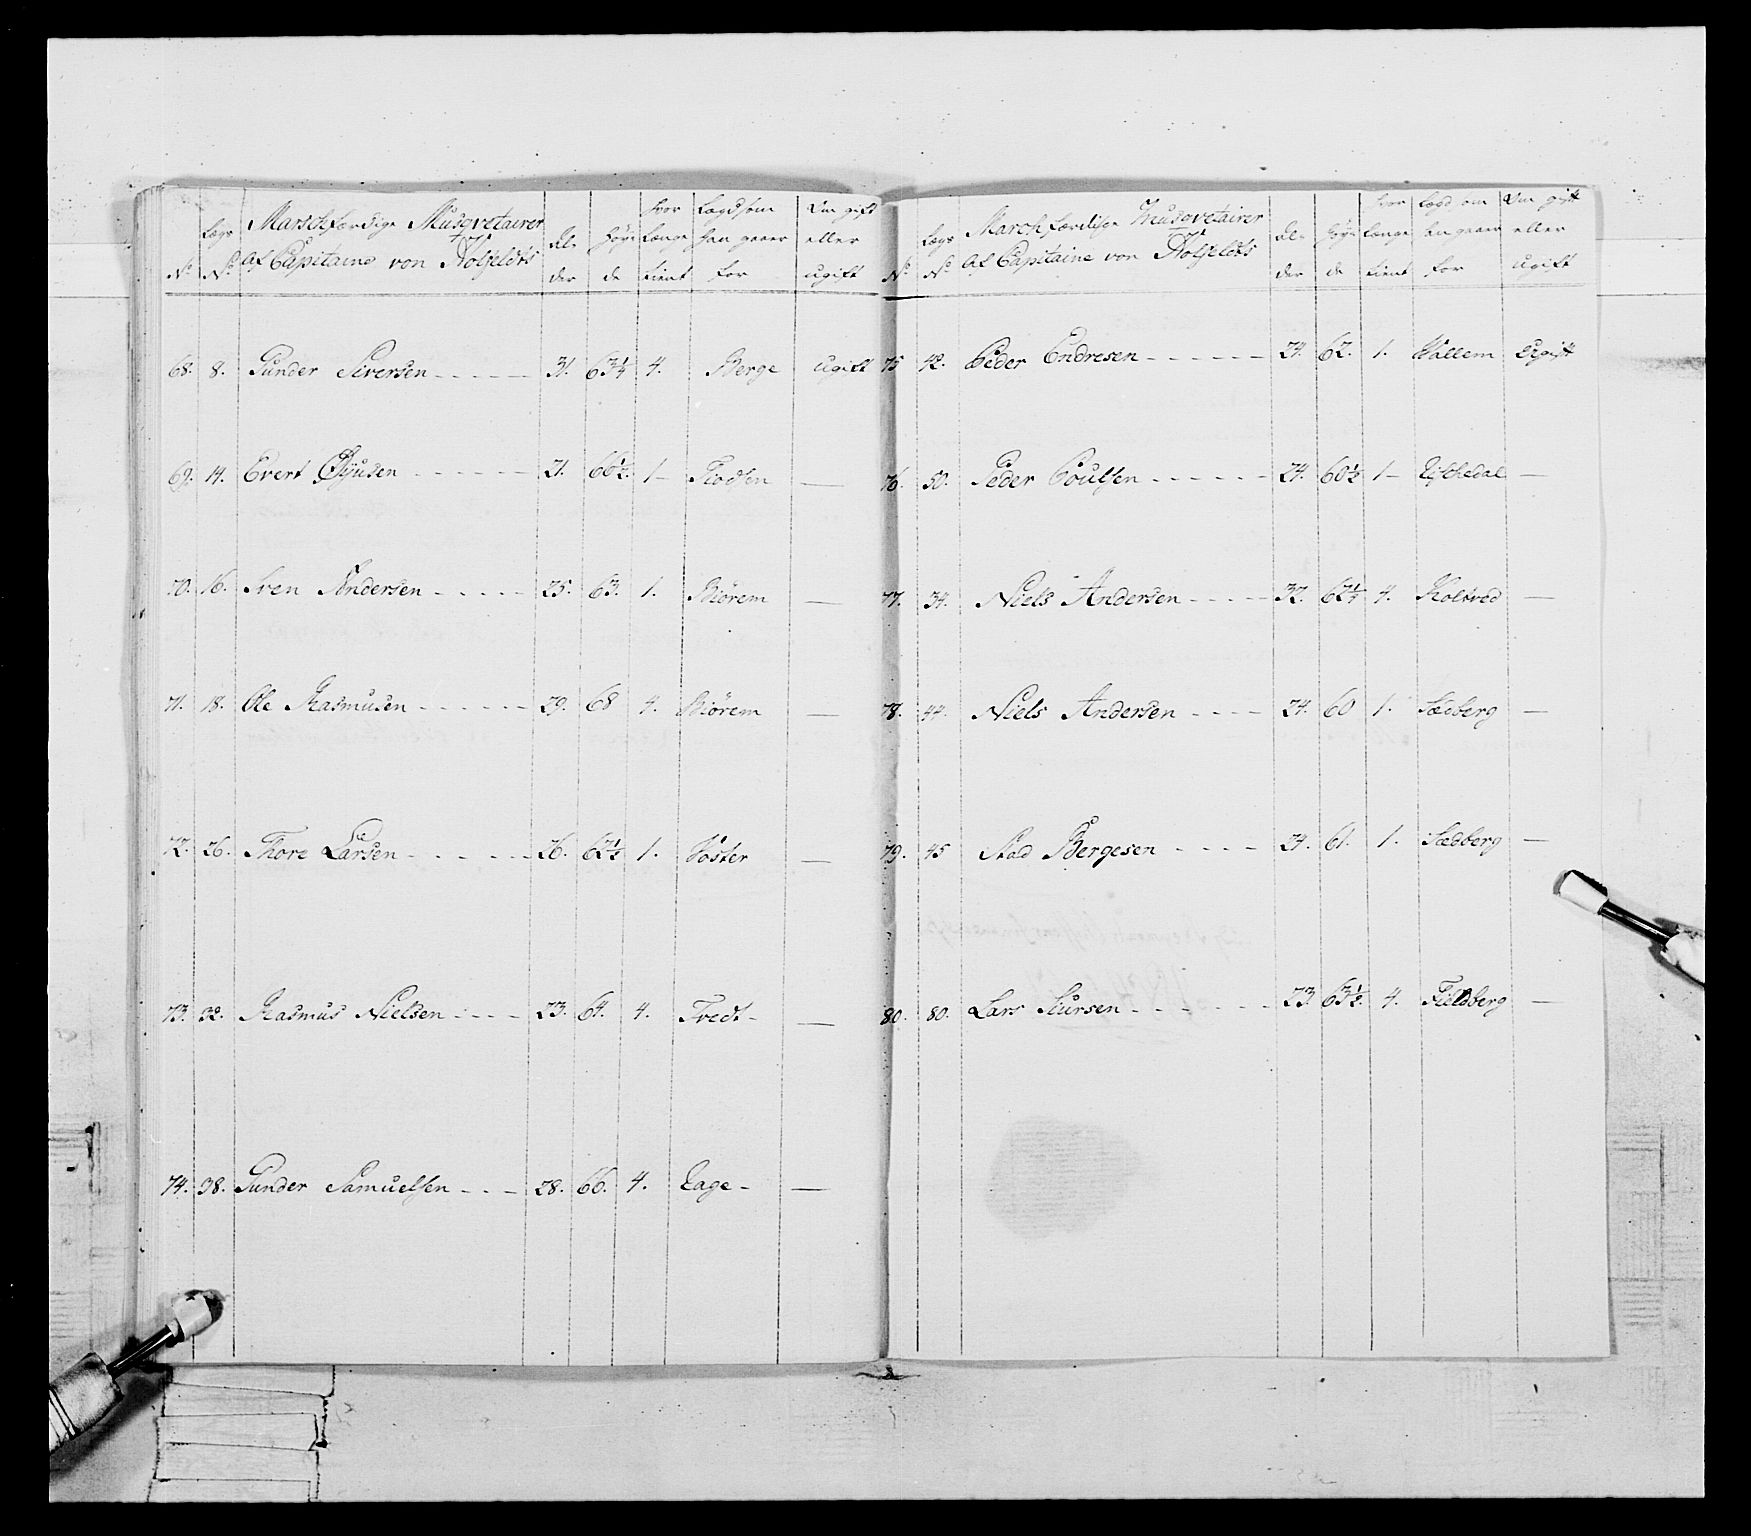 No. Lægs No. Marschfærdige Musqvetairer af Capitaine von Kolfeldts Al- der Høy- de Hvor længe tient Lægd som han gaaer for Om gift eller ugift
68. 8. Gunder Siversen 31. 63¼ 4. Berge ugift
69. 14. Evert 21. 66½. 1 — —
70. 16. Sven Andersen 25. 63. 1. Biörem —
71. 18. Ole Rasmusen 29. 68 4. Biörem —
72. 26. Thore Larsen 26. 62½ 1. Föster —
73. 32. Rasmus Nielsen 23. 64. 4. Tredt —
74. 38. Gunder Samuelsen 28. 66. 4. Eage —
No. Lægs No. Marchfærdige Musqvetairer af Capitaine von Kolfeldts Al- der Høy- de Hvor længe tient Lægd som han gaaer for Om gift eller ugift
75 42. Peder Endresen 24. 62. 1. Vallem Ugift
76. 50. Peder Poulsen 24. 60½ 1 — Eschedal —
77. 34. Niels Andersen 32. 62¼ 4. Koltved —
78. 44. Niels Andersen 24. 60 1. Sædberg —
79. 45 Stad Bergesen 24. 61. 1. Sædberg —
80. 80. Lars Siursen 23 63½. 4. Fieldberg —